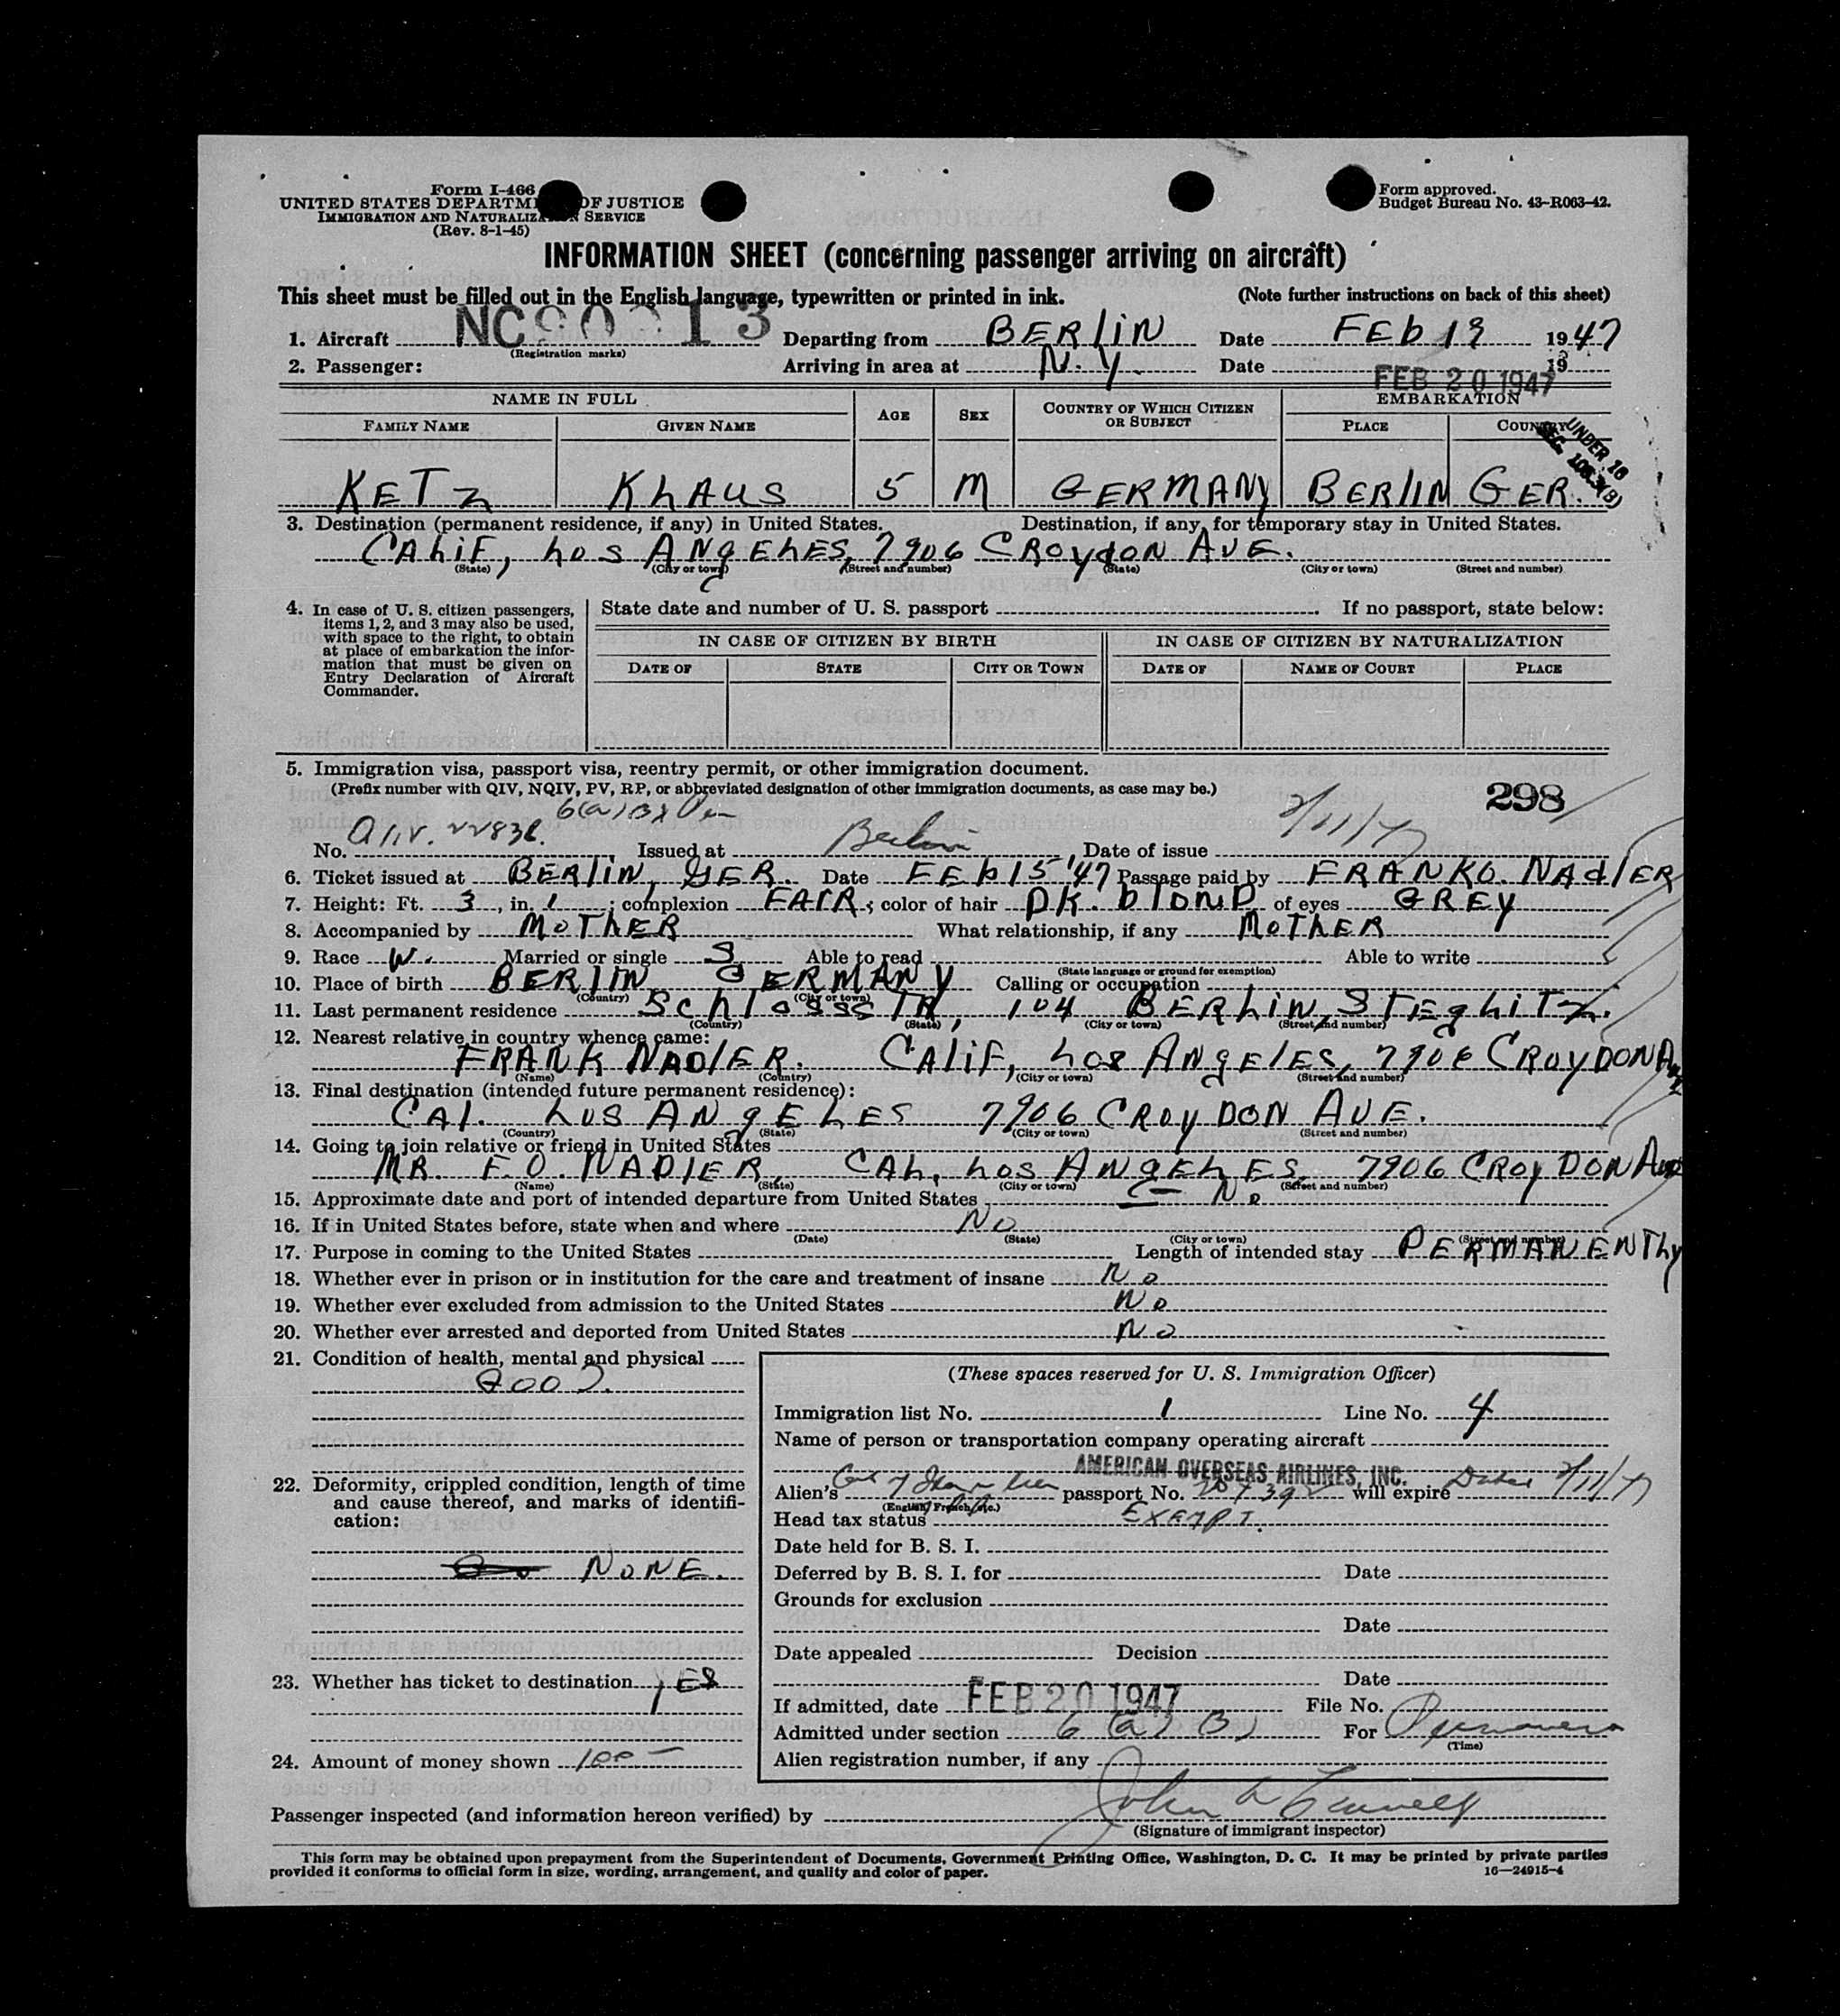 Form I-466
UNITED STATES DEPARTM OF JUSTICE
IMMIGRATION AND NATURALIZA N SERVICE
(Rev. 8-1-45)
Form approved.
Budget Bureau No. 43-R063-42.
INFORMATION SHEET (concerning passenger arriving on aircraft)
This sheet must be filled out in the English language, typewritten or printed in ink. (Note further instructions on back of this sheet)
1. Aircraft NC90913 (Registration marks) Departing from BERlIN Date FEb 19 1947
2. Passenger: Arriving in area at N.Y. Date FEB 20 1947 19
NAME IN FULL AGE SEX COUNTRY OF WHICH CITIZEN OR SUBJECT EMBARKATION
FAMILY NAME GIVEN NAME PLACE COUNTRY
UNDER 16
KETz KhAUS 5 M GERMANY BERlIN GER.
3. Destination (permanent residence, if any) in United States. Destination, if any, for temporary stay in United States.
CAhiF, hos ANgEhES, 7906 CROydON AVE.
(State) (City or town) (Street and number) (State) (City or town) (Street and number)
4. In case of U. S. citizen passengers, items 1, 2, and 3 may also be used, with space to the right, to obtain at place of embarkation the information that must be given on Entry Declaration of Aircraft Commander.
State date and number of U. S. passport If no passport, state below:
IN CASE OF CITIZEN BY BIRTH IN CASE OF CITIZEN BY NATURALIZATION
DATE OF STATE CITY OR TOWN DATE OF NAME OF COURT PLACE
5. Immigration visa, passport visa, reentry permit, or other immigration document.
(Prefix number with QIV, NQIV, PV, RP, or abbreviated designation of other immigration documents, as case may be.) 298
No. Issued at Berlin Date of issue 2/11/47
6. Ticket issued at BERlIN, GER. Date FEb 15 '47 Passage paid by FRANK O. NAdlER
7. Height: Ft. 3, in. 1; complexion FAIR; color of hair DK. blOND of eyes GREY
8. Accompanied by MOThER What relationship, if any MOThER
9. Race W. Married or single S Able to read Able to write
(State language or ground for exemption)
10. Place of birth BERlIN GERMANY Calling or occupation
(Country) (City or town)
11. Last permanent residence SchlossSTR, 104 BERhiN, STEghiTz.
(Country) (State) (City or town) (Street and number)
12. Nearest relative in country whence came:
FRANK NADlER. CAliF, hos ANgElES, 7906 CROyDON Ave
(Name) (Country) (City or town) (Street and number)
13. Final destination (intended future permanent residence):
CAl. hos ANgEhES 7906 CROyDON AVE.
(Country) (State) (City or town) (Street and number)
14. Going to join relative or friend in United States
MR. F.O. NADlER, CAh, hos ANgEhES, 7906 CROyDON Ave
(Name) (State) (City or town) (Street and number)
15. Approximate date and port of intended departure from United States No
16. If in United States before, state when and where No
(Date) (State) (City or town) (Street and number)
17. Purpose in coming to the United States Length of intended stay PERMANENThy
18. Whether ever in prison or in institution for the care and treatment of insane No
19. Whether ever excluded from admission to the United States No
20. Whether ever arrested and deported from United States No
21. Condition of health, mental and physical
GOOD.
22. Deformity, crippled condition, length of time and cause thereof, and marks of identification:
NONE.
23. Whether has ticket to destination YES
24. Amount of money shown 100 —
(These spaces reserved for U. S. Immigration Officer)
Immigration list No. 1 Line No. 4
Name of person or transportation company operating aircraft
AMERICAN OVERSEAS AIRLINES, INC.
Alien's passport No. will expire Dated 2/11/47
(English, French, etc.)
Head tax status EXEMPT.
Date held for B. S. I.
Deferred by B. S. I. for Date
Grounds for exclusion
Date
Date appealed Decision
Date
If admitted, date FEB 20 1947 File No.
Admitted under section 6 (a) (3) For
(Time)
Alien registration number, if any
Passenger inspected (and information hereon verified) by John
(Signature of immigrant inspector)
This form may be obtained upon prepayment from the Superintendent of Documents, Government Printing Office, Washington, D. C. It may be printed by private parties
provided it conforms to official form in size, wording, arrangement, and quality and color of paper. 16—24915-4